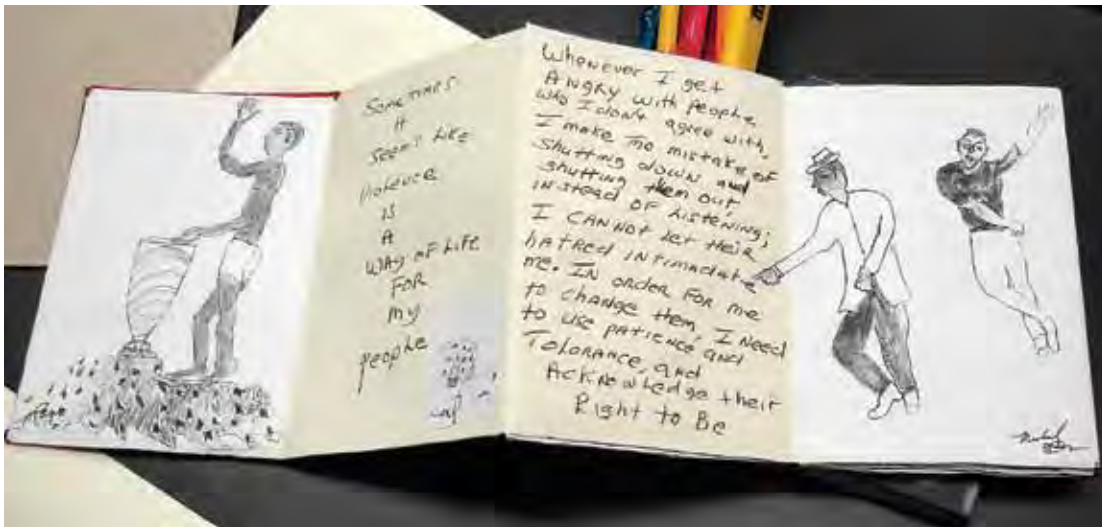 Sometimes
it
seems like
violence
is
A
way of Life
FOR
my
people
Whenever I get
Angry with people
who I don't agree with,
I make the mistake of
shutting down and
shutting them out,
instead of Listening;
I cannot let their
hatred intimadate
me. In order for me
to change them, I need
to use patience and
Tolorance, and
Acknowledge their
Right to Be